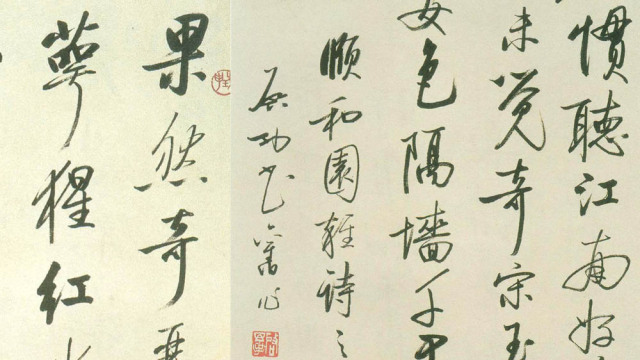 慣聽江南好
未覺奇宋玉
女色隔墻千
頤和園雜詩之
啟功書舊作
果然奇
萼猩紅